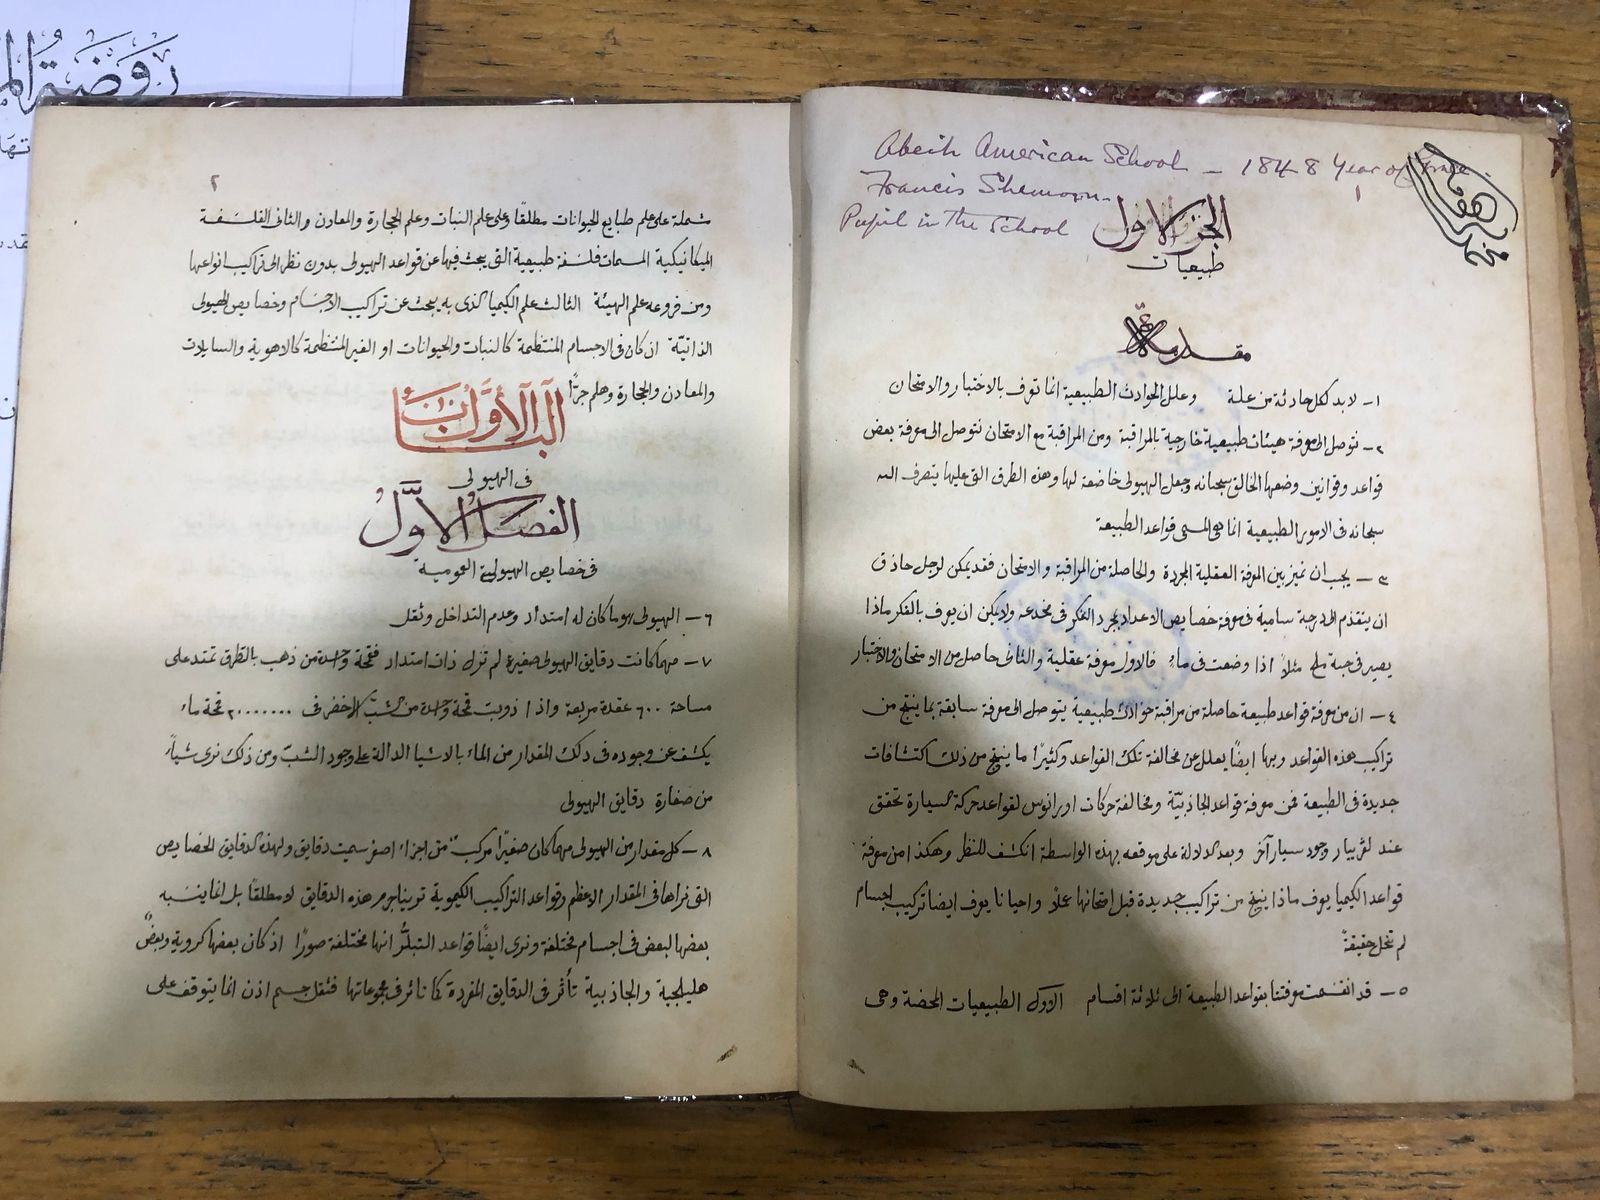 Abeih American School - 1848 Year of Grace
Francis Shemoon
Pupil in the School
١
الجزء الاول
طبيعيات
مقدمة
١- لا بد لكل حادثة من علة وعلل الحوادث الطبيعية انما تعرف بالاختبار والامتحان
٢- نتوصل الى معرفة هيئات طبيعية خارجية بالمراقبة ومن المراقبة مع الامتحان نتوصل الى معرفة بعض
قواعد وقوانين وضعها الخالق سبحانه وجعل الهيولى خاضعة لها وهذه الطرق التي عليها يتصرف الله
سبحانه في الامور الطبيعية انما هي المسمى قواعد الطبيعة
٣- يجب ان نميز بين المعرفة العقلية المجردة والحاصلة من المراقبة والامتحان فقد يمكن لرجل حاذق
ان يتقدم الى درجة سامية في معرفة خصايص الاعداد بمجرد الفكر في مخدعه ولا يمكن ان يعرف بالفكر ماذا
يصير في حبة ملح مثلاً اذا وضعت في ماء فالاول معرفة عقلية والثاني حاصل من الامتحان والاختبار
٤- ان من معرفة قواعد طبيعة حاصلة من مراقبة حوادث طبيعية يتوصل الى معرفة سابقة بما ينتج من
تراكيب هذه القواعد وبها ايضاً يعلل عن مخالفة تلك القواعد وكثيرًا ما ينتج من ذلك اكتشافات
جديدة في الطبيعة فمن معرفة قواعد الجاذبيّة ومخالفة حركات اورانوس لقواعد حركة السيارة تحقق
عند لڤريار وجود سيار آخر وبعد الدلالة على موقعه بهذه الواسطة انكشف للنظر وهكذا من معرفة
قواعد الكيميا يعرف ماذا ينتج من تراكيب جديدة قبل امتحانها عملاً واحيانا يعرف ايضا تركيب اجسام
لم تحل حقيقةً
٥- قد انقسمت معرفتنا بقواعد الطبيعة الى ثلاثة اقسام الاول الطبيعيات المحضة وهي
٢
مشملة على علم طبايع الحيوانات مطلقًا وعلى علم النبات وعلم الحجارة والمعادن والثاني الفلسفة
الميكانيكية المسمات فلسفة طبيعية التي يبحث فيها عن قواعد الهيولى بدون نظر الى تراكيب انواعها
ومن فروعه علم الهيئة الثالث علم الكيميا الذي به يبحث عن تراكيب الاجسام وخصايص الهيولى
الذاتيّة ان كان في الاجسام المنتظمة كالنبات والحيوانات او الغير المنتظمة كالاهوية والسايلات
والمعادن والحجارة وهلم جرًّا
الباب الأوّل
في الهيولى
الفصل الاوّل
في خصايص الهيولية العمومية
٦- الهيولى هو ما كان له امتداد وعدم التداخل وثقل
٧- مهما كانت دقايق الهيولى صغيرة لم تزل ذات امتداد فقمحة واحدة من ذهب بالتطرق تمتد على
مساحة ٦٠٠ عقدة مربعة واذا ذوبت قمحة واحدة من الشب الاخضر في ٢٠٠٠٠٠٠٠ قمحة ماء
يكشف عن وجوده في ذلك المقدار من الماء بالاشيا الدالة على وجود الشب ومن ذلك نرى شيأ
من صغارة دقايق الهيولى
٨- كل مقدار من الهيولى مهما كان صغيرًا مركب من اجزاء اصغر سميت دقايق ولهذه الدقايق الخصايص
التي نراها في المقدار الاعظم وقواعد التراكيب الكيموية ترينا جرم هذه الدقايق لا مطلقًا بل انما ينسبه
بعضها لبعض في اجسام مختلفة ونرى ايضًا قواعد التبلُّر انها مختلفة صورًا اذ كان بعضها كروية وبعضٌ
هليلجية والجاذبية تأثر في الدقايق المفردة كما تاثر في مجموعاتها فثقل جسم اذن انما يتوقف على